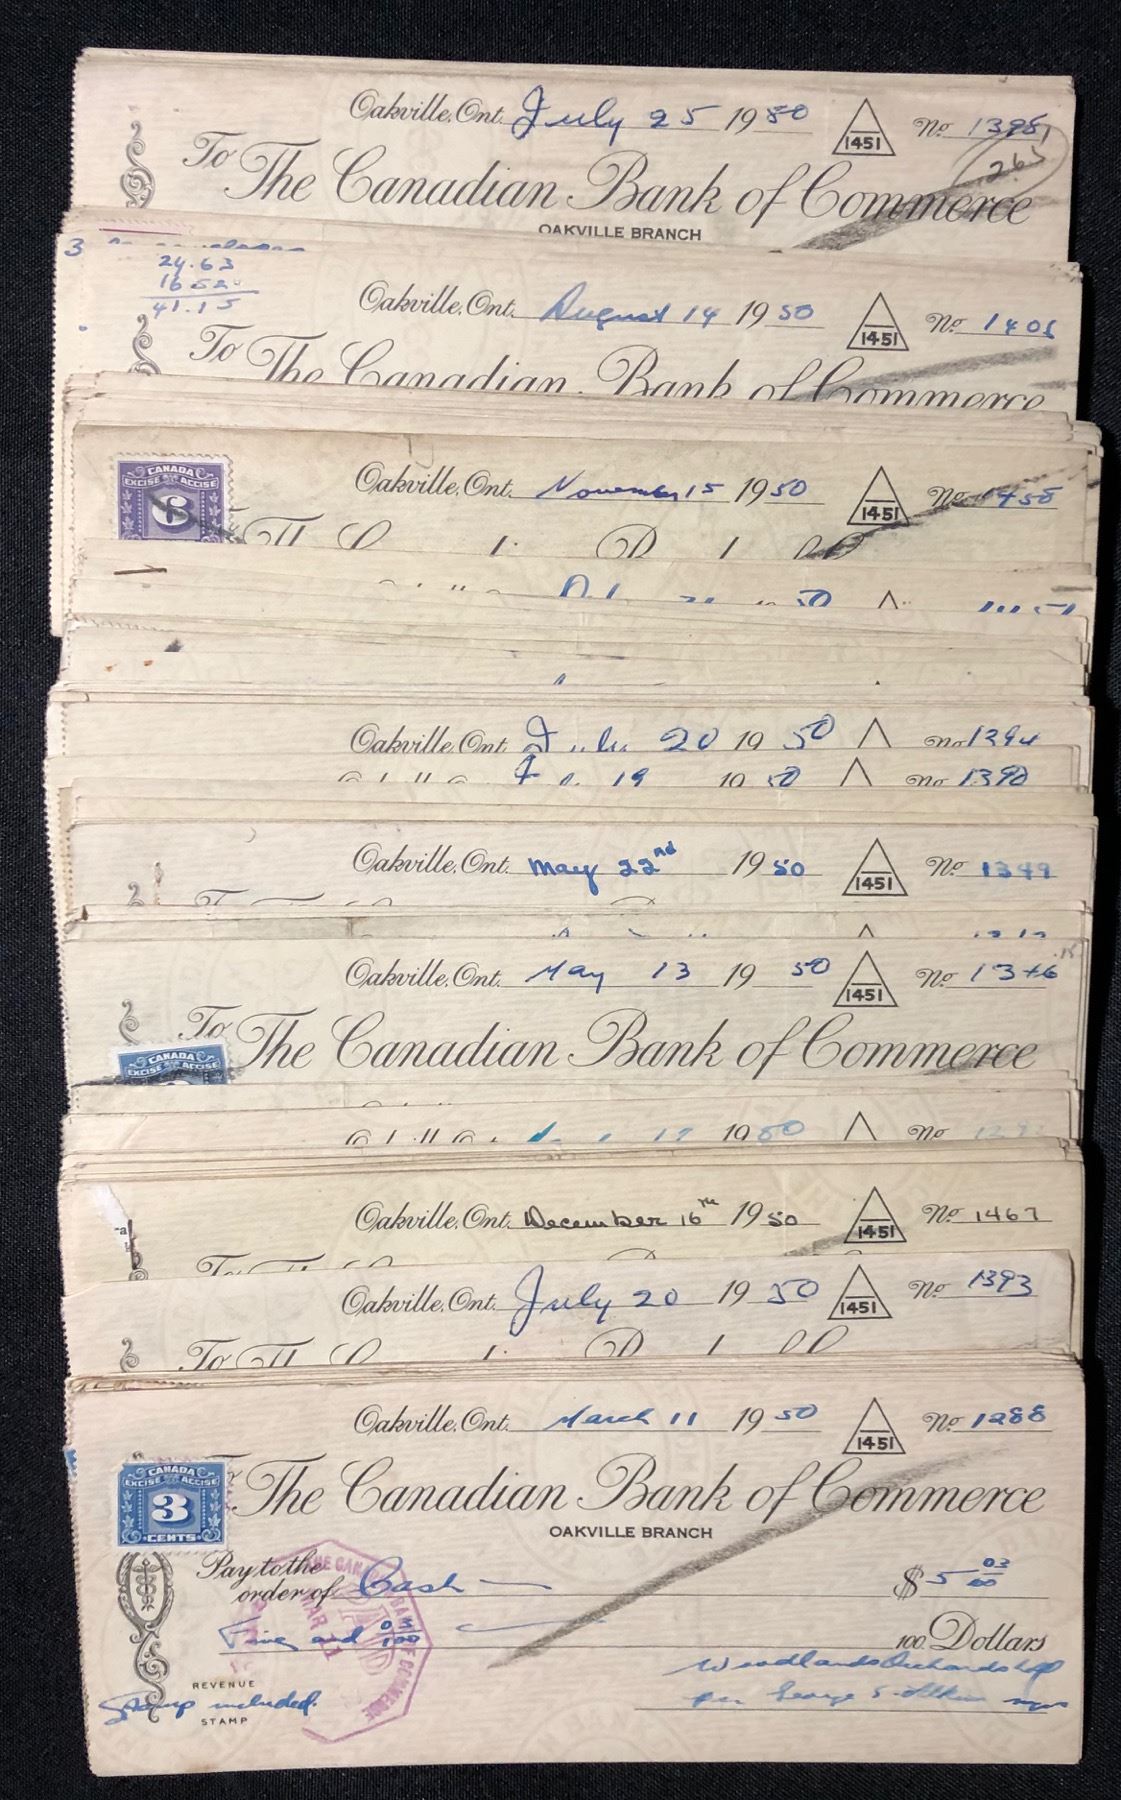 Oakville, Ont. July 25 1950 1451 No 1398
265
To The Canadian Bank of Commerce
OAKVILLE BRANCH
3
24.63
16 52
41.15
Oakville, Ont. August 14 1950 1451 No 1405
To The Canadian Bank of Commerce
CANADA
EXCISE ACCISE
6
Oakville, Ont. November 15 1950 1451 No 1458
50
Oakville, Ont. July 20 1950 No 1394
19 1950 No 1390
Oakville, Ont. May 22nd 1950 1451 No 1349
Oakville, Ont. May 13 1950 1451 No 1346
To The Canadian Bank of Commerce
CANADA
EXCISE ACCISE
1950 No
Oakville, Ont. December 16th 1950 1451 No 1467
To
Oakville, Ont. July 20 1950 1451 No 1393
To
Oakville, Ont. March 11 1950 1451 No 1288
To The Canadian Bank of Commerce
OAKVILLE BRANCH
CANADA
EXCISE ACCISE
3
CENTS
Pay to the order of Cash $5 03/00
Five and 03/100 100 Dollars
THE CANADIAN BANK OF COMMERCE
PAID
MAR 11
Woodlands Orchards Ltd
per George S. Atkin mgr
REVENUE
STAMP
Stamp included.